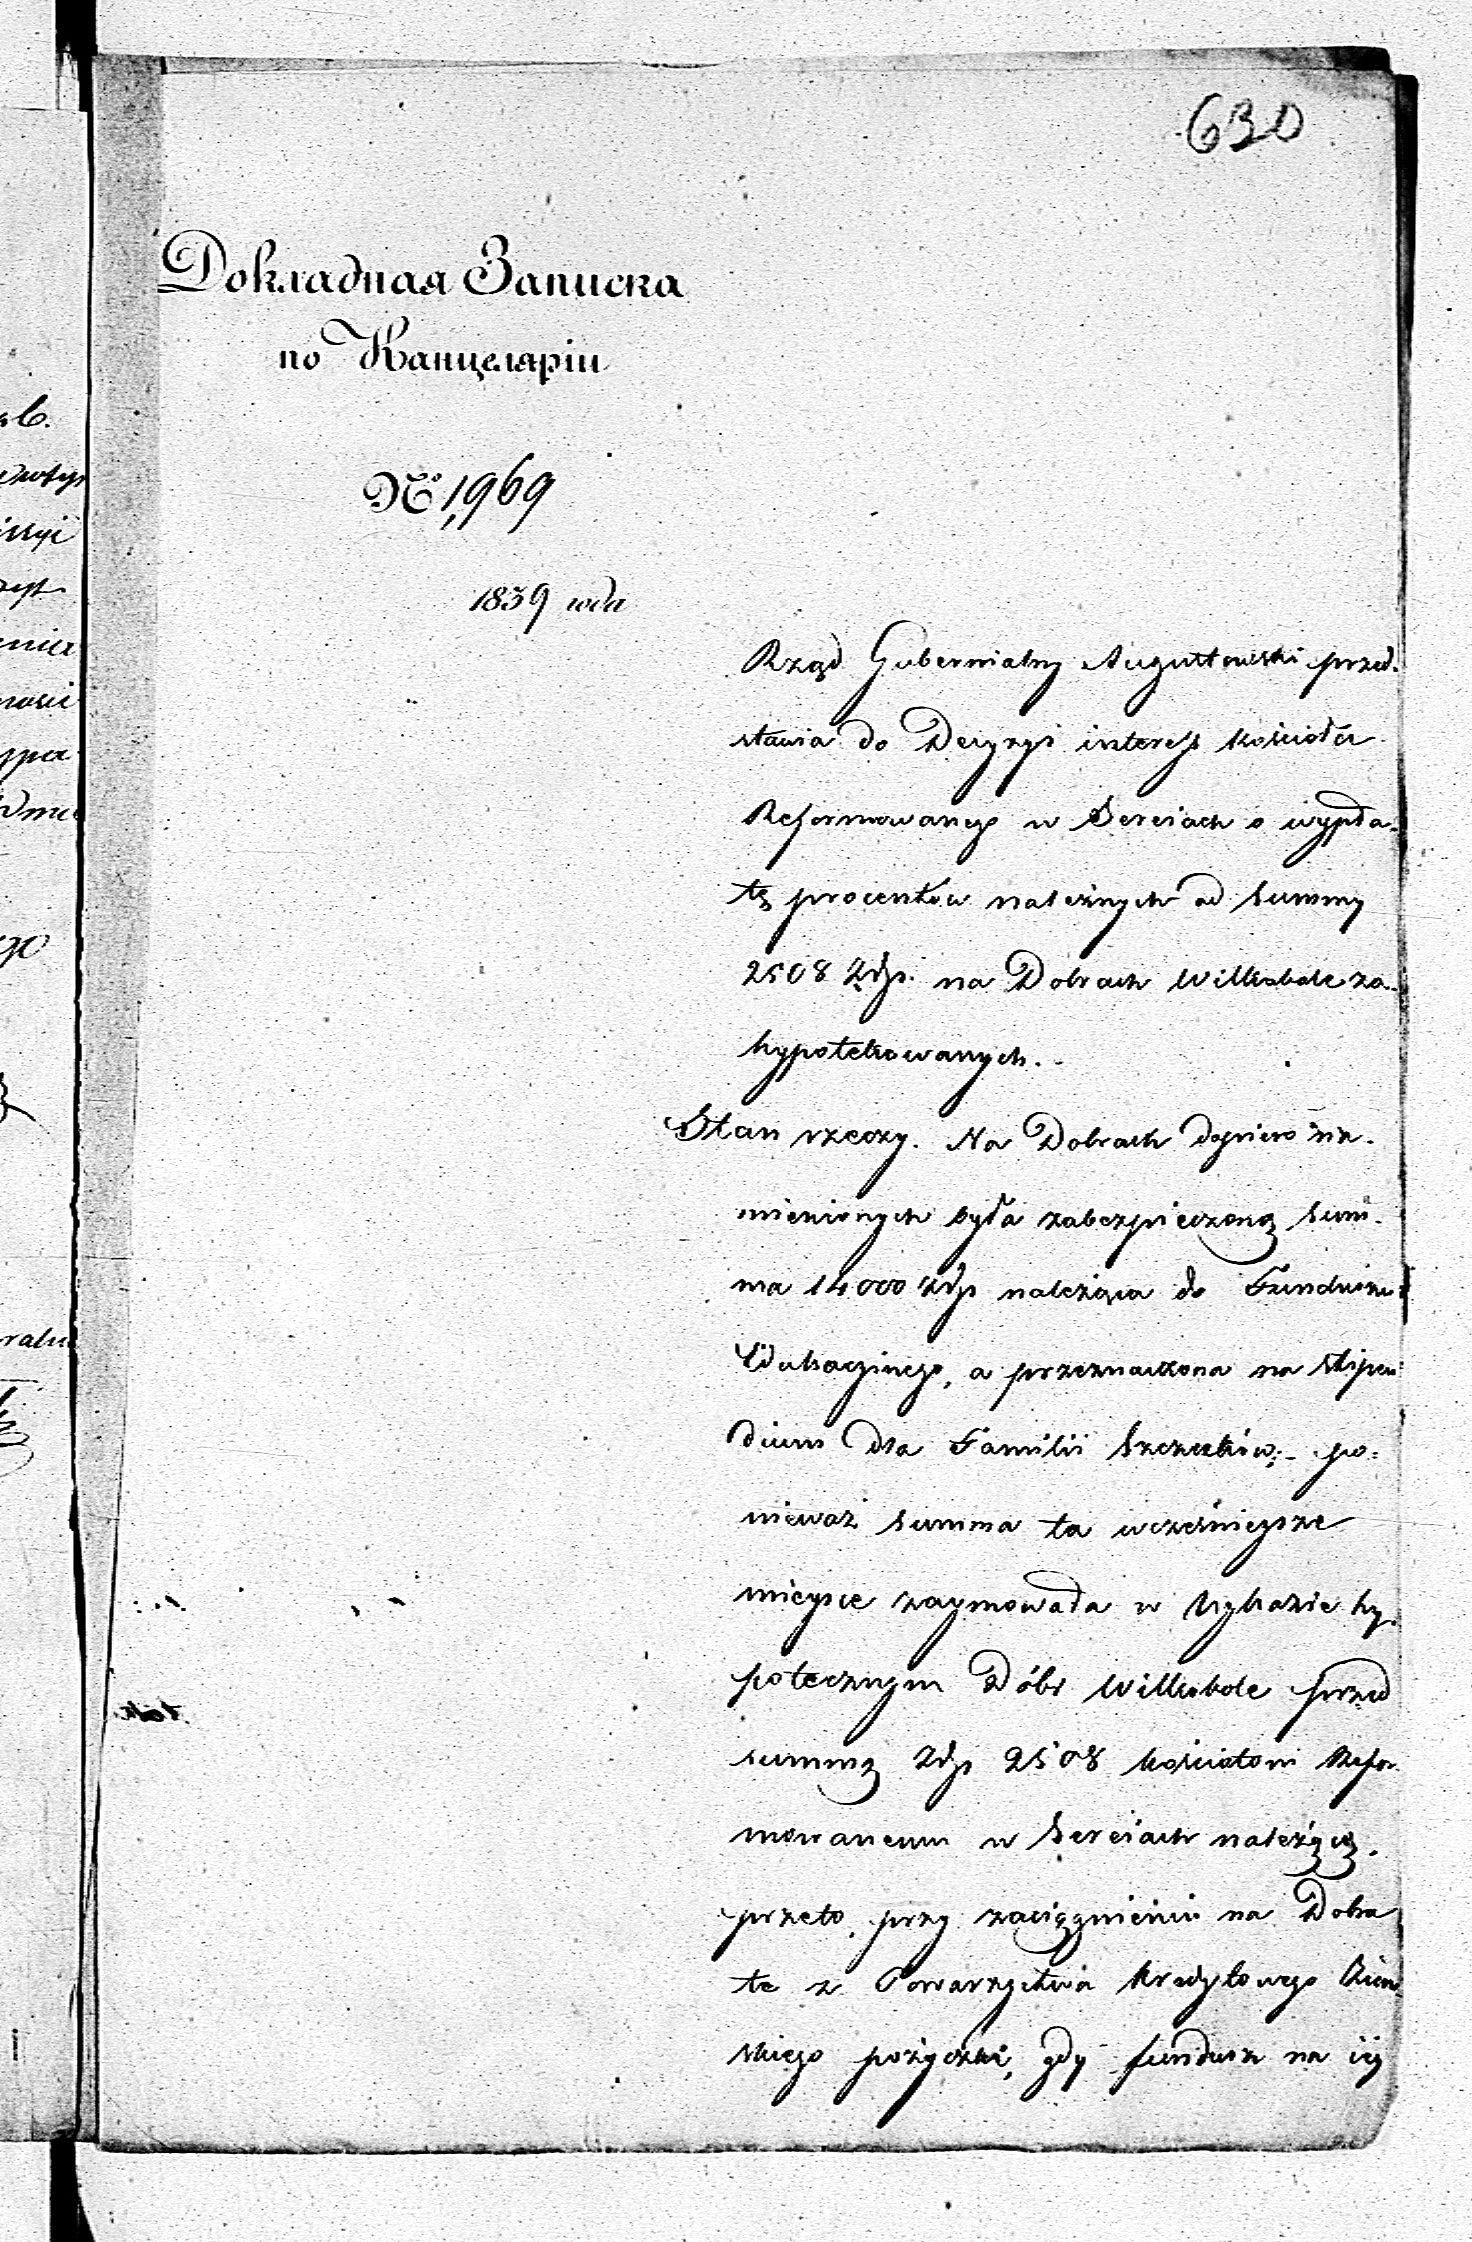 630
Докладная Записка
по Канцеляріи
№ 1,969
1839 года
Rząd Gubernialny Augustowski przed-
stawia do Decyzyi interess kościoła
Reformowanego w Sereiach o wypła-
tę procentów należnych od summy
2508 Złp. na Dobrach Wilkobole za-
hypotekowanych.
Stan rzeczy. Na Dobrach dopiero wz-
mienionych była zabezpieczoną sum-
ma 14000 złp należąca do Funduszu
Edukacyinego, a przeznaczona na stipen
dium dla Familii Szczuków; po-
nieważ summa ta wcześnieysze
mieysce zaymowała w Wykazie hy-
potecznym Dóbr Wilkobole przed
summą Złp 2508 kościołowi Refor
mowanemu w Sereiach należącą.
przeto przy zaciągnieniu na Dobra
te z Towarzystwa Kredytowego Ziem
skiego pożyczki, gdy fundusz na iey